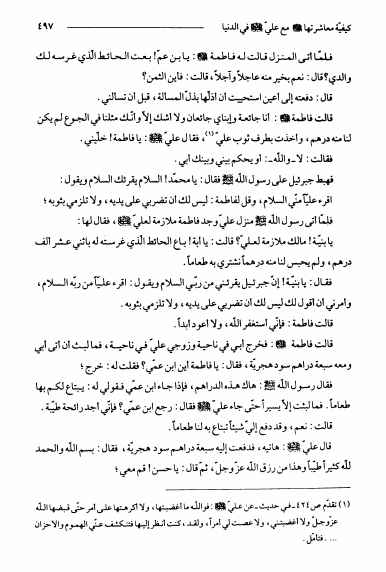 كيفيّة معاشرتها ﷺ مع عليّ ﷺ في الدنيا ٤٩٧
فلمّا أتى المنزل قالت له فاطمة : يا بن عمّ! بعت الحائط الّذي غرسه لك
والدي؟ قال: نعم بخير منه عاجلاً وآجلاً، قالت: فأين الثمن؟
قال: دفعته إلى أعين استحييت أن أذلّها بذلّ المسألة، قبل أن تسألني.
قالت فاطمة : أنا جائعة وإبناي جائعان ولا أشك إلاّ وأنّك مثلنا في الجوع لم يكن
لنا منه درهم، وأخذت بطرف ثوب عليّ (١)، فقال عليّ : يا فاطمة! خلّيني.
فقالت: لا ـ والله ـ: أو يحكم بيني وبينك أبي.
فهبط جبرئيل على رسول الله ﷺ فقال: يا محمّد! السلام يقرئك السلام ويقول:
اقرء عليّاً منّي السلام، وقل لفاطمة: ليس لك أن تضربي على يديه، ولا تلزمي بثوبه؛
فلمّا أتى رسول الله ﷺ منزل عليّ وجد فاطمة ملازمة لعليّ ، فقال لها:
يا بنيّة! مالك ملازمة لعليّ؟ قالت: يا أبة! باع الحائط الّذي غرسته له باثني عشر ألف
درهم، ولم يحبس لنا منه درهماً نشتري به طعاماً.
فقال: يا بنيّة! إنّ جبرئيل يقرئني من ربّي السلام ويقول: اقرء عليّاً من ربّه السلام،
وأمرني أن أقول لك ليس لك أن تضربي على يديه، ولا تلزمي بثوبه.
قالت فاطمة: فإنّي أستغفر الله، ولا أعود أبداً.
قالت فاطمة : فخرج أبي في ناحية وزوجي عليّ في ناحية، فما لبث أن أتى أبي
ومعه سبعة دراهم سود هجريّة، فقال: يا فاطمة أين ابن عمّي؟ فقلت له: خرج؛
فقال رسول الله ﷺ: هاك هذه الدراهم، فإذا جاء ابن عمّي فقولي له: يبتاع لكم بها
طعاماً. فما لبثت إلاّ يسيراً حتّى جاء عليّ فقال: رجع ابن عمّي؟ فإنّي أجد رائحة طيّبة.
قالت: نعم، وقد دفع إليّ شيئاً تبتاع به لنا طعاماً.
قال عليّ : هاتيه، فدفعت إليه سبعة دراهم سود هجريّة، فقال: بسم الله والحمد
لله كثيراً طيّباً وهذا من رزق الله عزّ وجلّ، ثمّ قال: يا حسن! قم معي؛
(١) تقدّم ص٤٢٤ ـ في حديث ـ عن عليّ : فوالله ما أغضبتها، ولا أكرهتها على أمر حتّى قبضها الله
عزّ وجلّ ولا أغضبتني، ولا عصت لي أمراً، ولقد، كنت أنظر إليها فتنكشف عنّي الهموم والأحزان
.... فتأمّل.